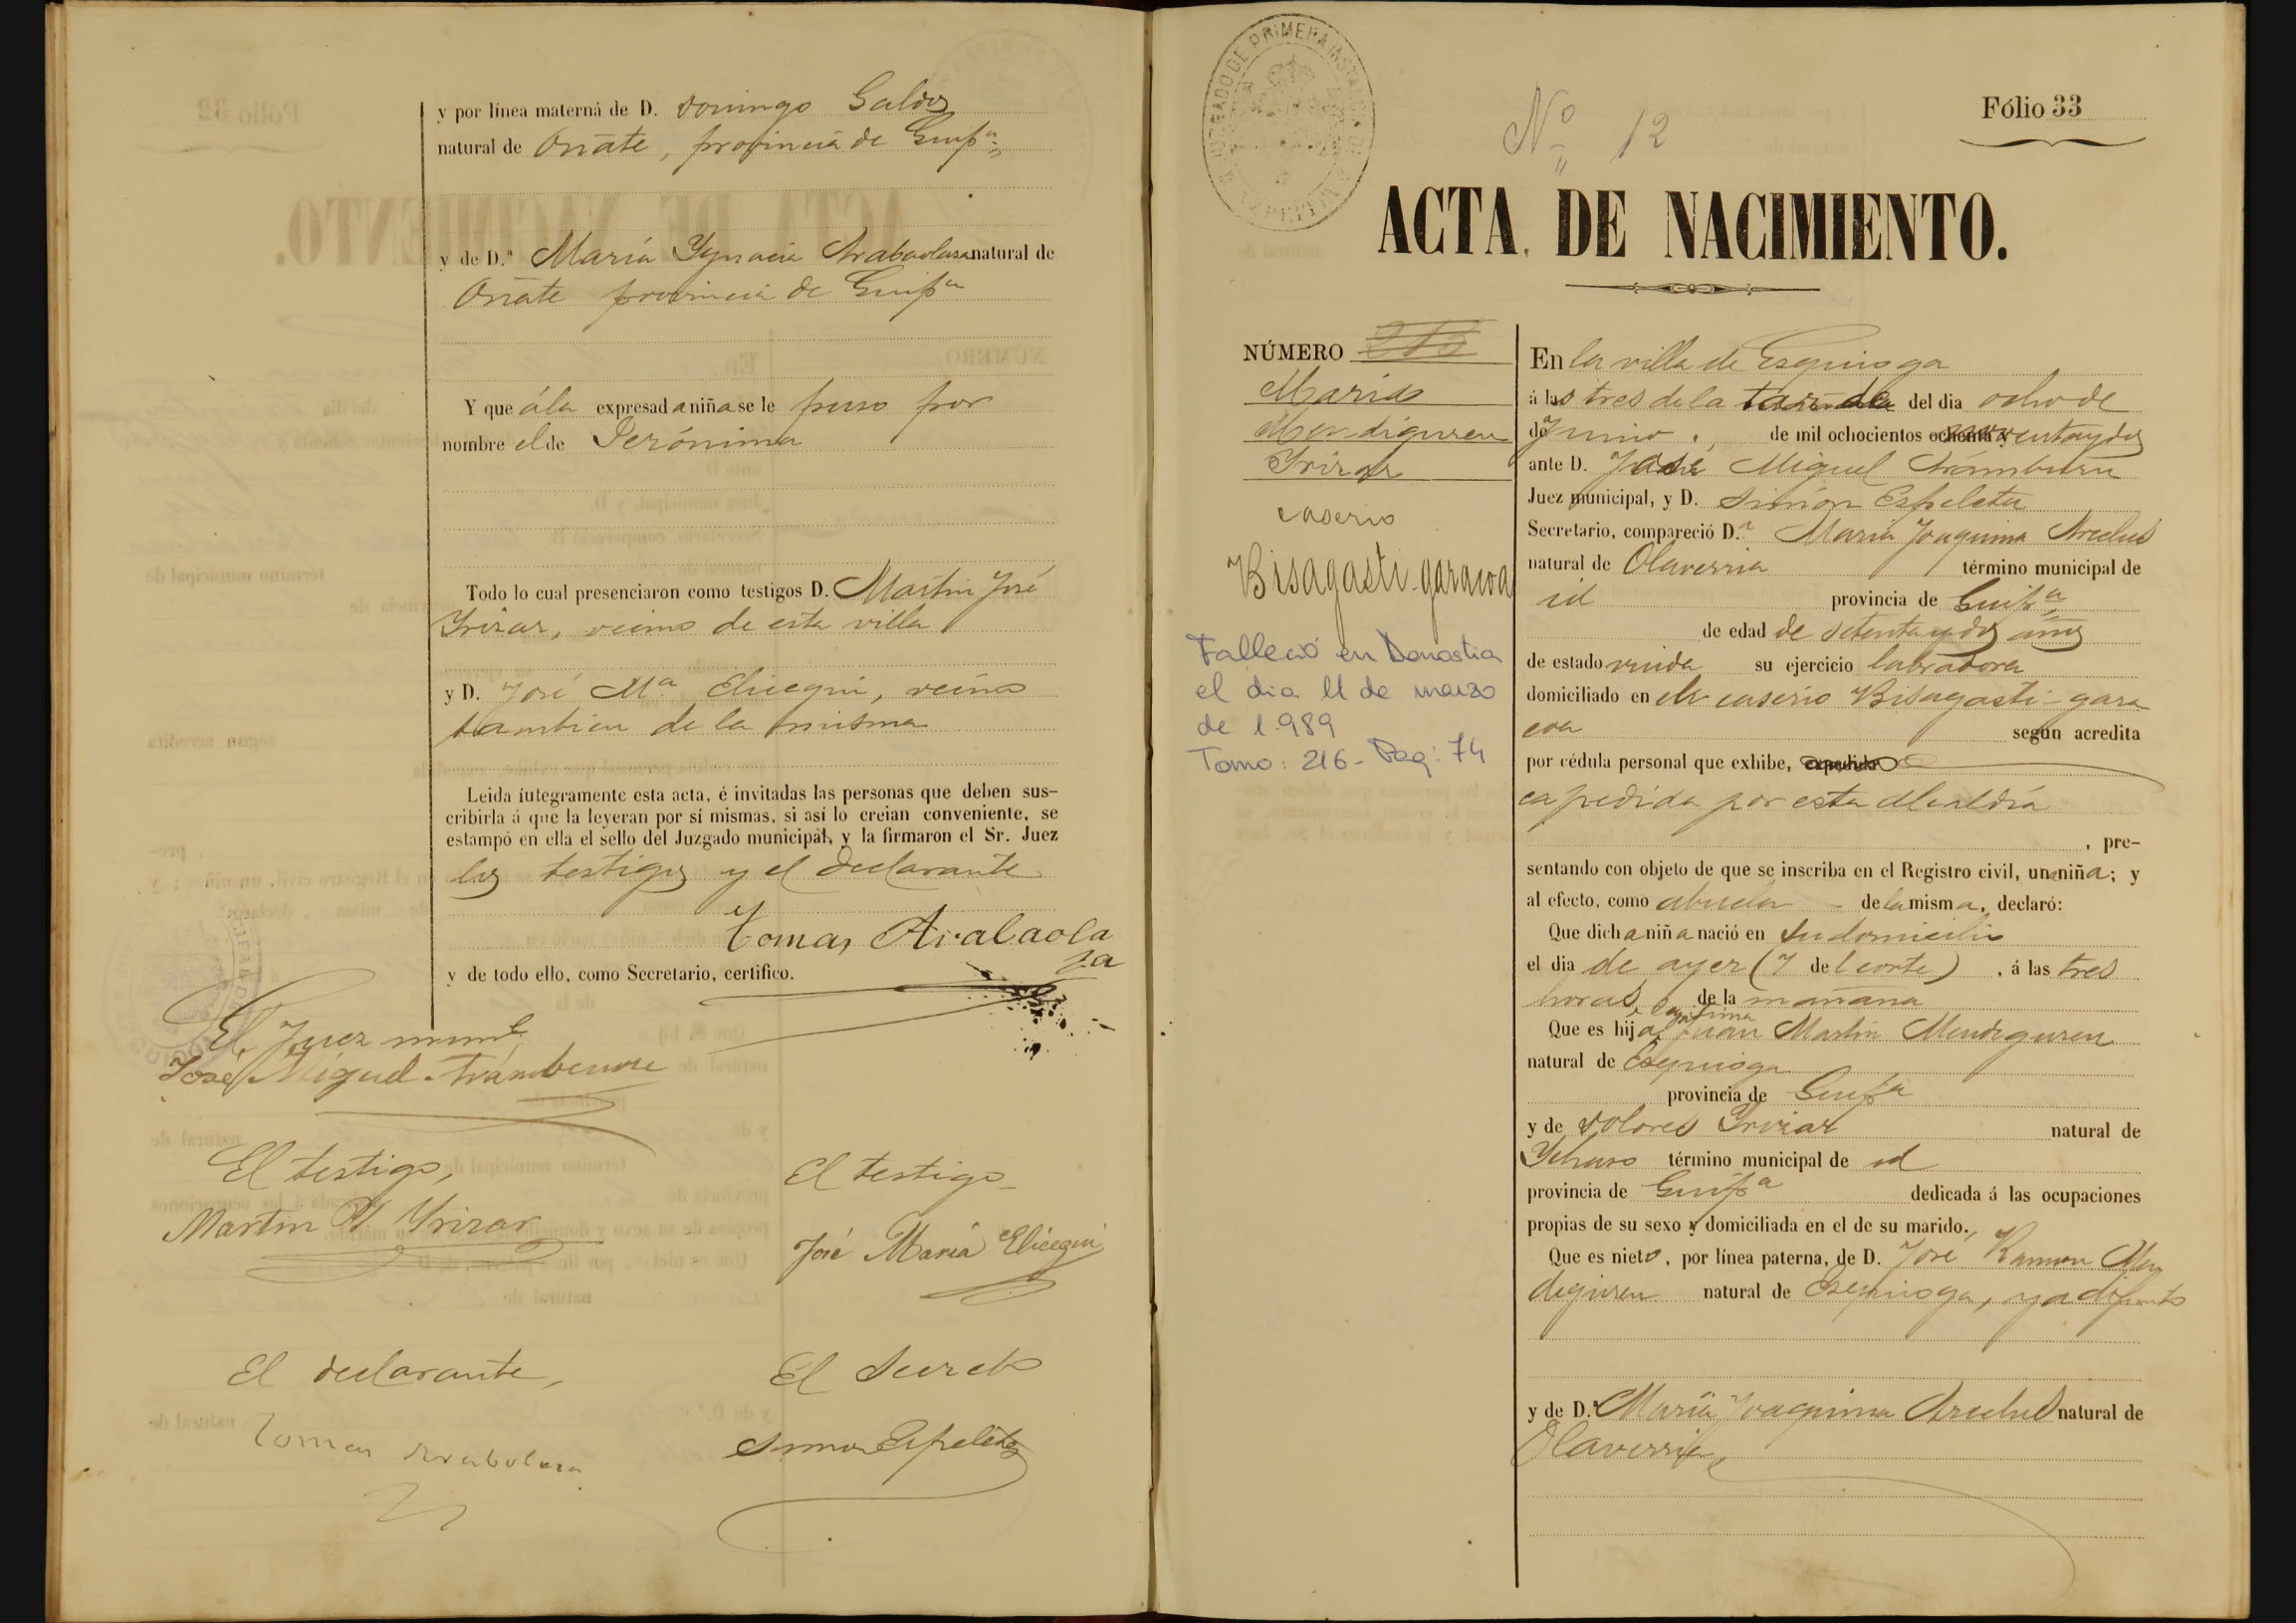 y por línea materna de D. Domingo Galdos
natural de Oñate, provincia de Guipª
y de D.ª María Ygnacia Arabaolaza natural de
Oñate provincia de Guipª
Y que á la expresada niña se le puso por
nombre el de Gerónima
Todo lo cual presenciaron como testigos D. Martin José
Yrizar, vecino de esta villa
y D. José Mª Elicegui, vecino
tambien de la misma
Leida íntegramente esta acta, é invitadas las personas que deben sus-
cribirla á que la leyeran por sí mismas, si así lo creian conveniente, se
estampó en ella el sello del Juzgado municipal, y la firmaron el Sr. Juez
los testigos y el declarante
Tomas Aralaola
za
y de todo ello, como Secretario, certifico.
El Juez munl
José Miguel Arámburu
El testigo,
Martin J. Yrizar
El testigo
José María Elicegui
El declarante,
Tomas Arabolaza
El Secreto
Simon Espeleta
Fólio 33
Nº 12
ACTA DE NACIMIENTO.
NÚMERO 213
María
Mendiguren
Yrizar
caserio
Bisagasti-garacoa
Falleció en Donostia
el dia 11 de marzo
de 1.989
Tomo: 216 - Pag: 74
En la villa de Esquioga
á las tres de la tarde del dia ocho de
de Junio de mil ochocientos ochenta y noventa y dos
ante D. José Miguel Arámburu
Juez municipal, y D. Simón Espeleta
Secretario, compareció D.ª María Joaquina Arcelus
natural de Olaverria término municipal de
id provincia de Guipª
de edad de setenta y dos años
de estado viuda su ejercicio labradora
domiciliado en el caserio Bisagasti-gara
coa según acredita
por cédula personal que exhibe, expedida
expedida por esta Alcaldía
, pre-
sentando con objeto de que se inscriba en el Registro civil, una niña; y
al efecto, como abuela de la misma, declaró:
Que dicha niña nació en su domicilio
el dia de ayer (7 del corte), á las tres
horas de la mañana
Que es hija legítima Juan Martin Mendiguren
natural de Esquioga
provincia de Guipª
y de Dolores Yrizar natural de
Ychaso término municipal de id
provincia de Guipª dedicada á las ocupaciones
propias de su sexo y domiciliada en el de su marido.
Que es nieto, por línea paterna, de D. José Ramon Men
diguren natural de Esquioga, ya difunto
y de D.ª María Joaquina Arcelus natural de
Olaverria,